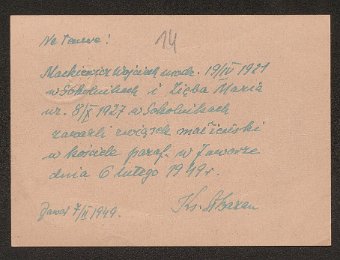 Ne Temere!
14
Mackiewicz Wojciech urodz. 19/IV 1921
w Sokolnikach i Zięba Maria
ur. 8/X 1927 w Sokolnikach
zawarli związek małżeński
w kościele paraf. w Jaworze
dnia 6 lutego 1949 r.
Jawor 7/II 1949.
Ks.